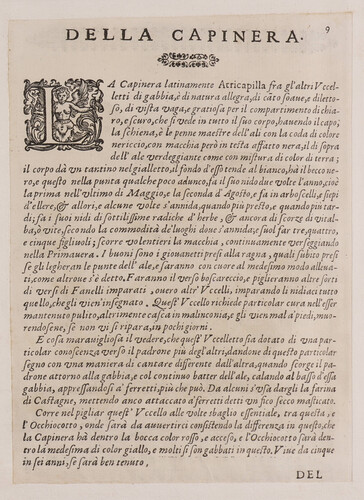 9
DELLA CAPINERA.
LA Capinera latinamente Atticapilla fra gl'altri Vccel-
letti di gabbia, è di natura allegra, di cāto soaue, e diletto-
so, di vista vaga, e gratiosa per il compartimento di chia-
ro, e scuro, che si vede in tutto il suo corpo, hauendo il capo;
la schiena, e le penne maestre dell'ali con la coda di colore
nericcio, con macchia però in testa affatto nera, il di sopra
dell' ale verdeggiante come con mistura di color di terra;
il corpo dà vn tantino nel gialletto, il fondo d'esso tende al bianco, hà il becco ne-
ro, e questo nella punta qualche poco adunco, fà il suo nido due volte l'anno, cioè
la prima nell'vltimo di Maggio, e la seconda d'Agosto, e fa in arboscelli, e siepi
d'ellere, & allori, e alcune volte s'annida, quando più presto, e quando più tar-
di; fa i suoi nidi di sottilissime radiche d'herbe, & ancora di scorze di vital-
ba, ò vite, secondo la commodità de'luoghi doue s'annida; e suol far tre, quattro,
e cinque figliuoli; scorre volentieri la macchia, continuamente verseggiando
nella Primauera. I buoni sono i giouanetti presi alla ragna, quali subito presi
se gli legheran le punte dell'ale, e saranno con cuore al medesimo modo alleua-
ti, come altroue s'è detto. Faranno il verso boscareccio, e piglieranno altre sorti
di versi de Fanelli imparati, ouero altr' Vccelli, imparando li nidiaci tutto
quello, che gli vien'insegnato. Quest' Vccello richiede particolar cura nell'esser
mantenuto pulito, altrimente casca in malinconia, e gli vien mal a piedi, muo-
rendosene, se non vi si ripara, in pochi giorni.
E cosa marauigliosa il vedere, che quest' Vccelletto sia dotato di vna par-
ticolar conoscenza verso il padrone più degl'altri, dandone di questo particolar
segno con vna maniera di cantare differente dall'altra, quando scorge il pa-
drone attorno alla gabbia, e col continuo batter dell'ale, calando al basso d'essa
gabbia, appressandosi a' ferretti, più che può. Da alcuni s'vsa dargli la farina
di Castagne, mettendo anco attaccato a' ferretti detti vn fico secco masticato.
Corre nel pigliar quest' Vccello alle volte sbaglio essentiale, tra questa, e
l'Occhiocotto, onde sarà da auuertirci consistendo la differenza in questo, che
la Capinera hà dentro la bocca color rosso, e acceso, e l'Occhiocotto sarà den-
tro la medesima di color giallo, e molti si son gabbati in questo. Viue da cinque
in sei anni, se sarà ben tenuto,
DEL